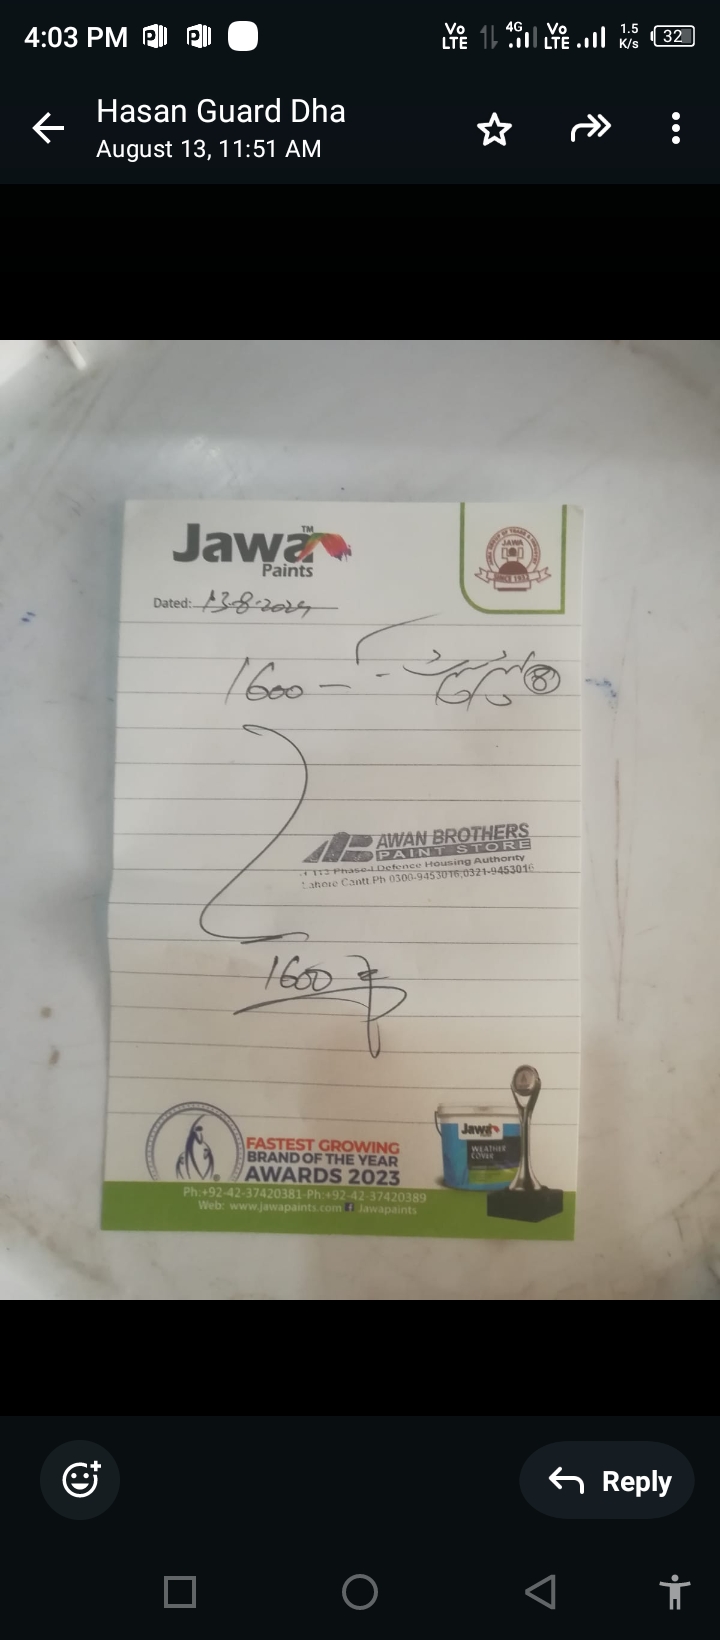 4:03 PM
Vo LTE 4G Vo LTE 1.5 K/s 32
Hasan Guard Dha
August 13, 11:51 AM
Jawa™
Paints
JAWA
SINCE 1932
Dated: 13-8-2024
1600 - 8
AWAN BROTHERS
PAINT STORE
Phase-I Defence Housing Authority
Lahore Cantt Ph 0300-9453016,0321-9453016
1600
FASTEST GROWING
BRAND OF THE YEAR
AWARDS 2023
Jawa
WEATHER
COVER
Ph:+92-42-37420381-Ph:+92-42-37420389
Web: www.jawapaints.com f Jawapaints
Reply